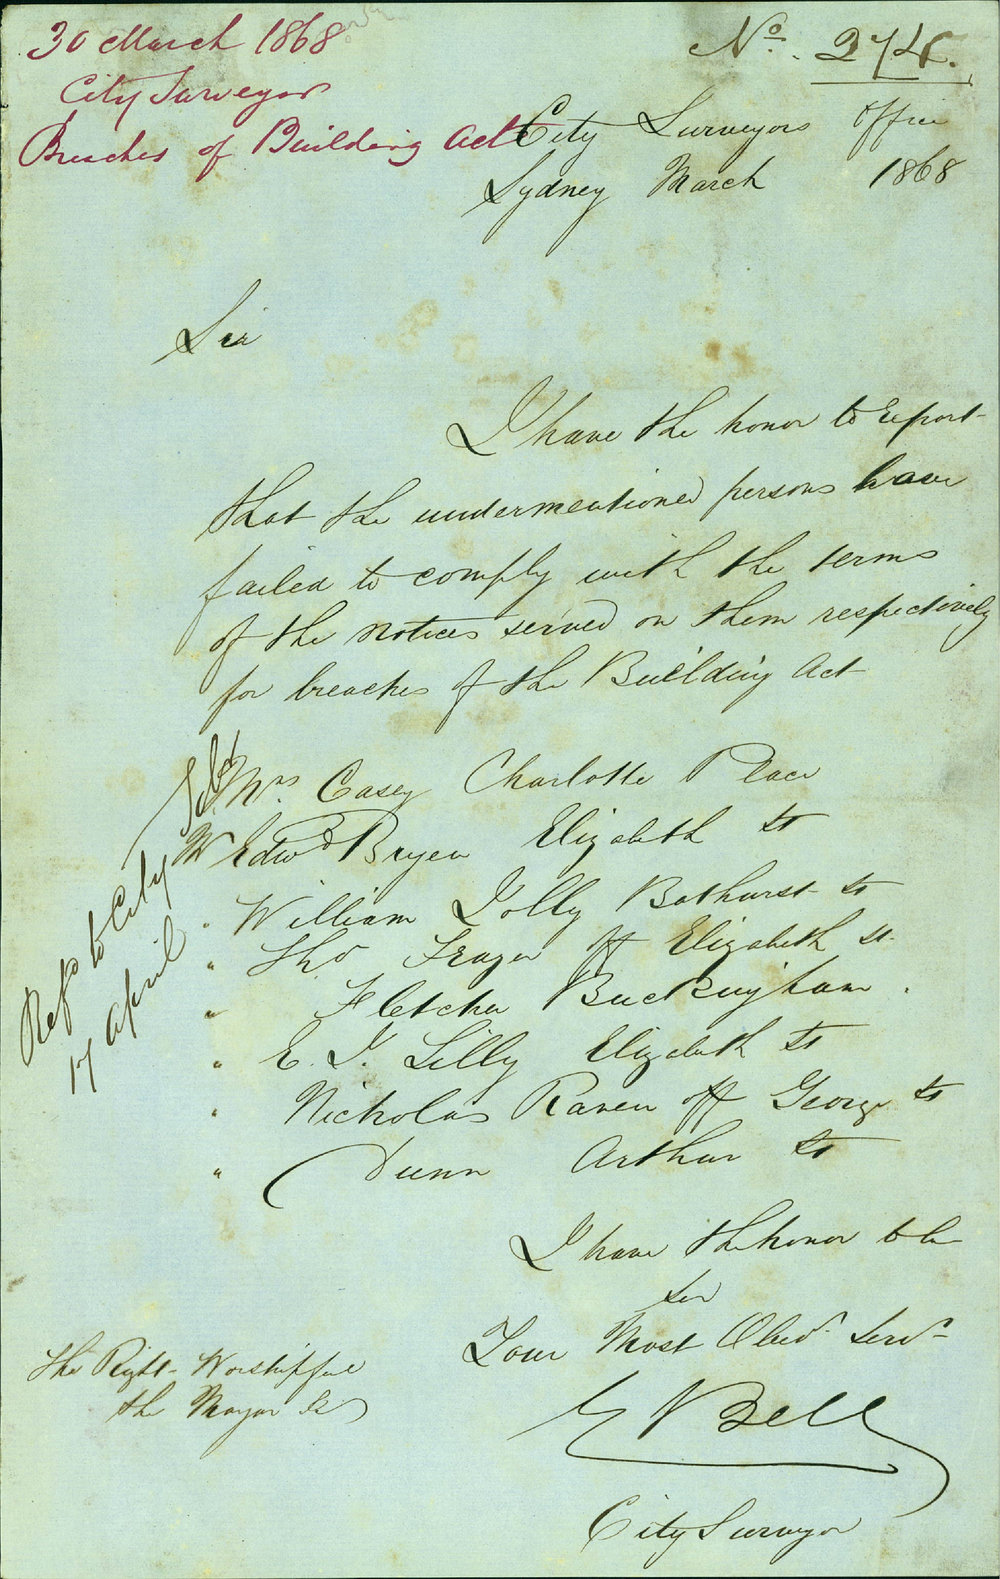 30 March 1868
City Surveyor
Breaches of Building Act
No. 274.
City Surveyors Office
Sydney March 1868
Sir
I have the honor to report
that the undermentioned persons have
failed to comply with the terms
of the notices served on them respectively
for breaches of the Building Act
Mrs. Casey Charlotte Place
Mr Edwd Bryen Elizabeth St
" William Jolly Bathurst St
" Thos Frazer off Elizabeth St.
" Fletcher Buckingham.
" E. J. Lilly Elizabeth St
" Nicholas Raven off George St
" Dunn Arthur St
Refd to City
17 April
I have the honor to be
Sir
Your Most Obed. Servt
E Bell
City Surveyor
The Right Worshipful
the Mayor &c